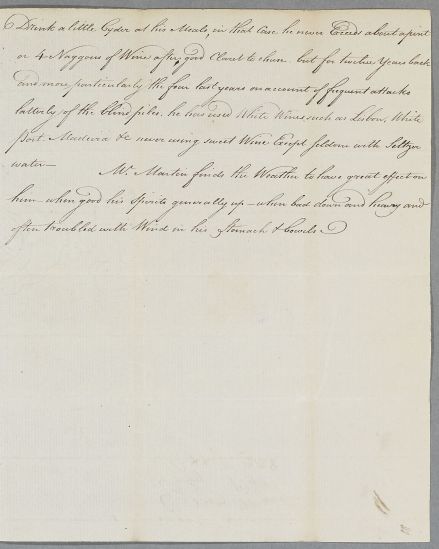 Drink a little Cyder at his Meals, in that Case he never Exceeds about a pint
or 4 Naggons of Wine after, good Claret to chuse. but for twelve Years back
and more particularly the four last years on account of frequent attacks
latterly of the blind piles, he has used White Wines, such as Lisbon, White
Port, Madeira &c never using sweet Wine Except seldom with Seltzer
water —
Mr. Marten finds the Weather to have great effect on
him — when good his Spirits generally up — when bad down and heavy and
often troubled with Wind in his Stomach & bowels.